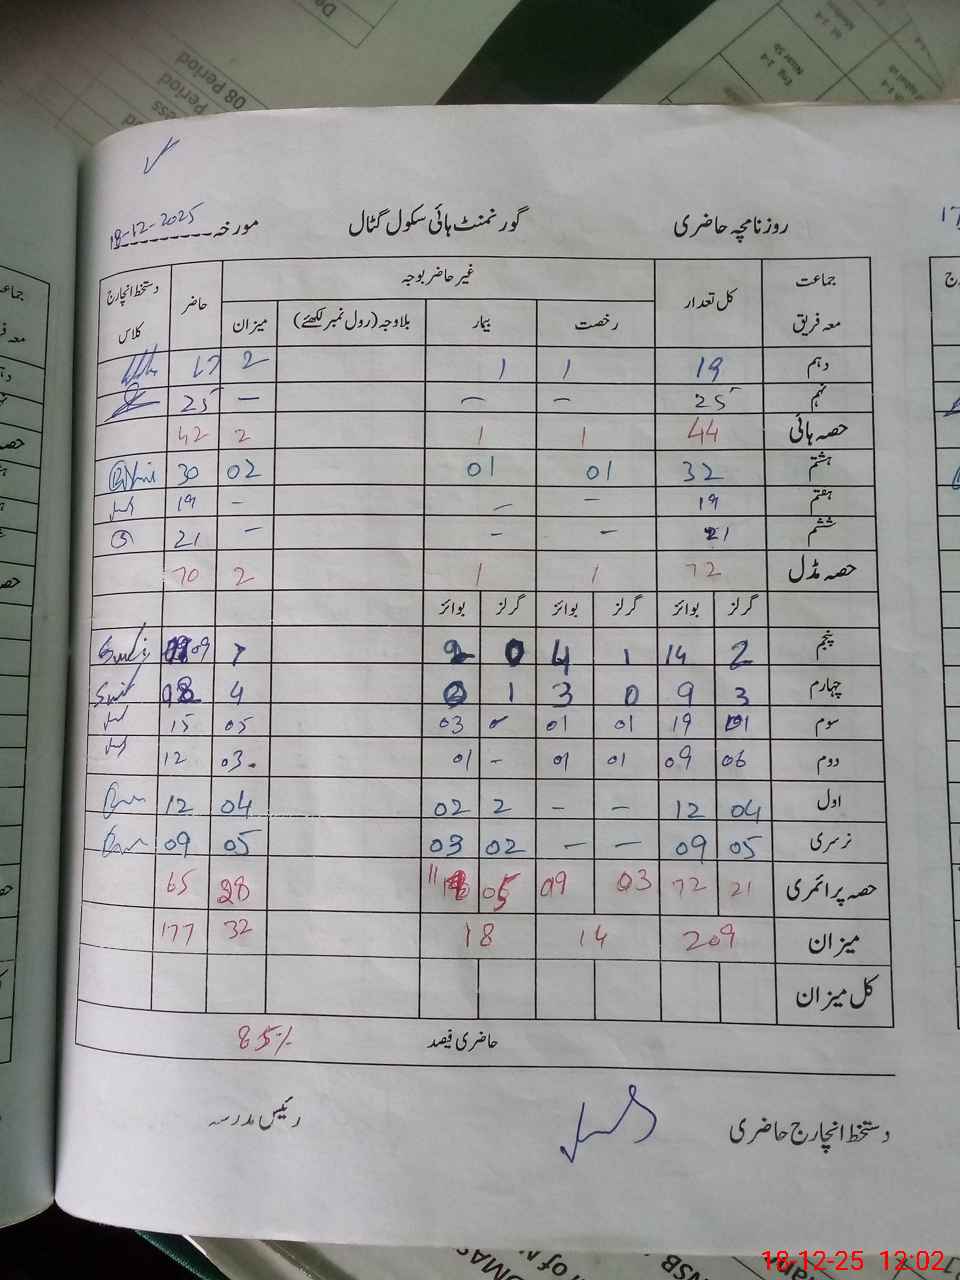 روزنامچہ حاضری گورنمنٹ ہائی سکول گٹال مورخہ 18-12-2025
جماعت معہ فریق کل تعداد غیر حاضر بوجہ حاضر دستخط انچارج کلاس
رخصت بیمار بلاوجہ (رول نمبر لکھئے) میزان
دہم 19 1 1 2 17
نہم 25 – – – 25
حصہ ہائی 44 1 1 2 42
ہشتم 32 01 01 02 30
ہفتم 19 – – – 19
ششم 21 – – – 21
حصہ مڈل 72 1 1 2 70
گرلز بوائز گرلز بوائز گرلز بوائز
پنجم 2 14 1 4 0 2 7 09
چہارم 3 9 0 3 1 0 4 08
سوم 01 19 01 01 – 03 05 15
دوم 06 09 01 01 – 01 03 12
اول 04 12 – – 2 02 04 12
نرسری 05 09 – – 02 03 05 09
حصہ پرائمری 21 72 03 09 05 11 28 65
میزان 209 14 18 32 177
کل میزان
حاضری فیصد 85%
دستخط انچارج حاضری رئیس مدرسہ
08 Period
Period
18-12-25 12:02